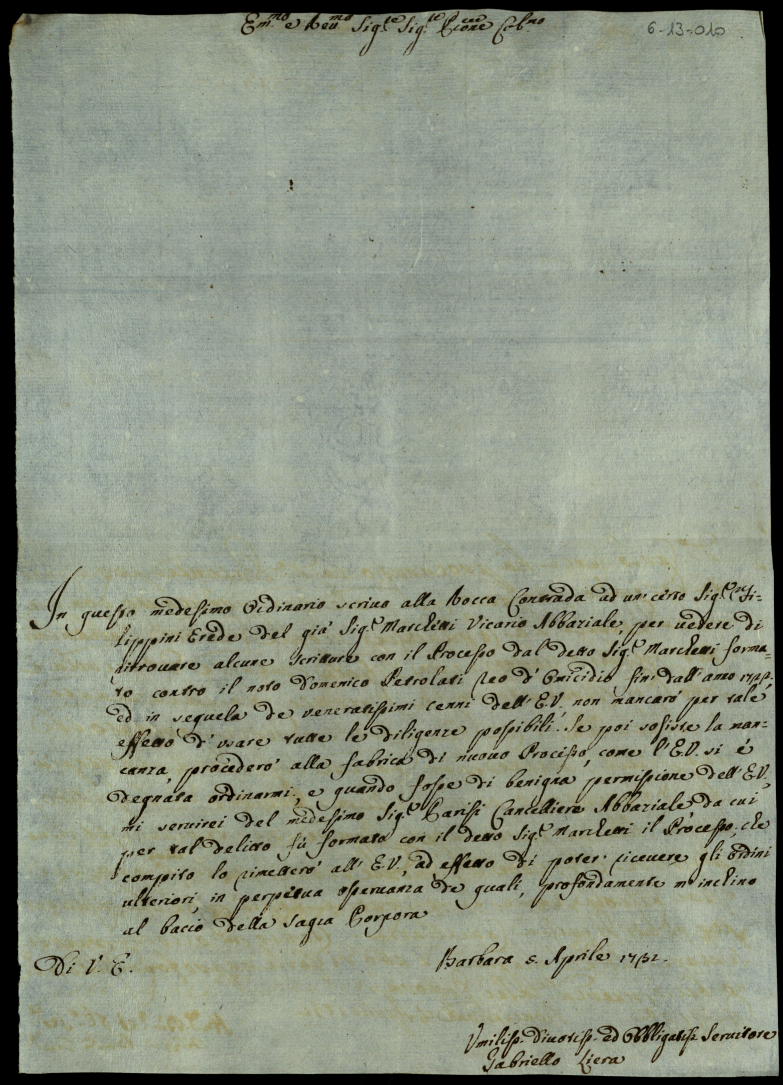 6-13-010
Em.mo e Reu.mo Sig.re Sig.re P.rone Col.mo
In questo medesimo Ordinario scriuo alla Rocca Contrada ad un' certo Sig.re Fi-
lippini Erede del già Sig.r Marchetti Vicario Abbaziale per uedere di
ritrouare alcune scritture con il Processo dal detto Sig.r Marchetti forma-
to contro il noto Domenico Petrolati Reo d' Omicidio fin' dall' anno
ed in sequela de ueneratissimi cenni dell' E.V. non mancarò per tale
effetto d' usare tutte le diligenze possibili. Se poi sosiste la man-
canza, procederò alla fabrica di nuouo Processo, come l' E.V. si è
degnata ordinarmi, e quando fosse di benigna permissione dell' E.V.
mi seruirei del medesimo Sig.r Parisi Cancelliere Abbaziale da cui
per tal delitto fù formato con il detto Sig.r Marchetti il Processo, che
compito lo rimetterò all' E.V., ad effetto di poter' riceuere gli ordini
ulteriori, in perpetua osseruanza de quali, profondamente m' inchino
al bacio della Sagra Porpora
Di V. E.
Barbara 8. Aprile 1732.
Vmiliss. Diuotiss. ed Obbligatiss. Seruitore
Gabriello Liera